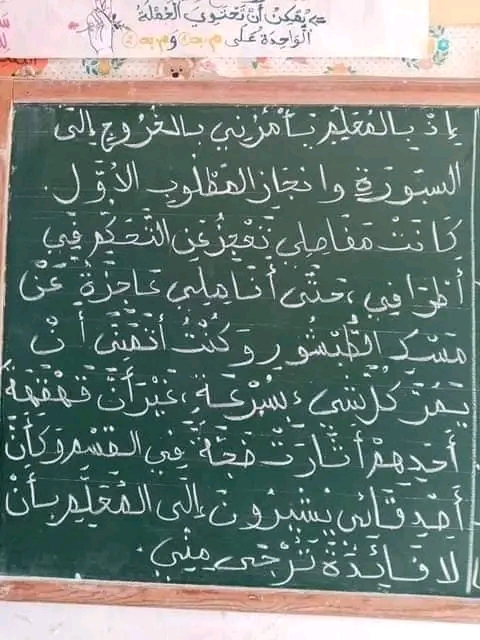 يُمْكِنُ أَنْ تَحْتَوِيَ الْعُقْلَةُ
الْوَاحِدَةُ عَلَى م.به1 وَم.به2
إِذْ بِالمُعَلِّمِ يَأْمُرُنِي بِالخُرُوجِ إِلَى
السَبُّورَةِ وانجاز المَطْلُوبِ الأَوَّلِ.
كَانَتْ مَفَاصِلِي تَعْجِزُ عَنِ التَّحَكُّمِ فِي
أَطْرَافِي، حَتَّى أَنَامِلِي عَاجِزَةٌ عَنْ
مَسْكِ الطَّبْشُورِ وَكُنْتُ أَتَمَنَّى أَنْ
يَمُرَّ كُلُّ شَيْءٍ بِسُرْعَةٍ، غَيْرَ أَنَّ قَهْقَهَةَ
أَحَدِهِمْ أَثَارَتْ ضَجَّةً فِي القِسْمِ وَكَأَنَّ
أَصْدِقَائِي يُشِيرُونَ إِلَى المُعَلِّمِ بِأَنْ
لا فَائِدَةَ تُرْجَى مِنِّي.